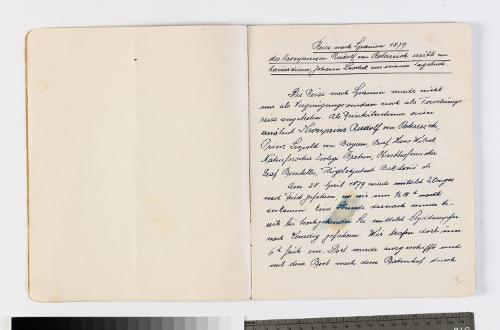 Reise nach Spanien 1879
des Kronprinzen Rudolf von Österreich erzählt von
Kammerdiener Johann Loschek aus seinem Tagebuch
Die Reise nach Spanien wurde nicht
nur als Vergnügungs sondern auch als Forschungs-
reise angetreten. Als Reiseteilnehmer waren
ernannt Kronprinz Rudolf von Österreich,
Prinz Leopold von Bayern, Graf Hans Wilczek
Naturforscher Brehm, Obersthofmeister
Graf Bombelles, Flügeladjutant
Am 28. April 1879 wurde mittels Zuges
nach Triest gefahren wo wir um Uhr nachts
ankamen. Eine Stunde darnach wurde be-
reits bei mittels Lloyddampfer
nach Venedig gefahren. Wir trafen dort um
6 h früh ein. Dort wurde ausgeschifft und
mit dem Boot nach dem Bahnhof durch